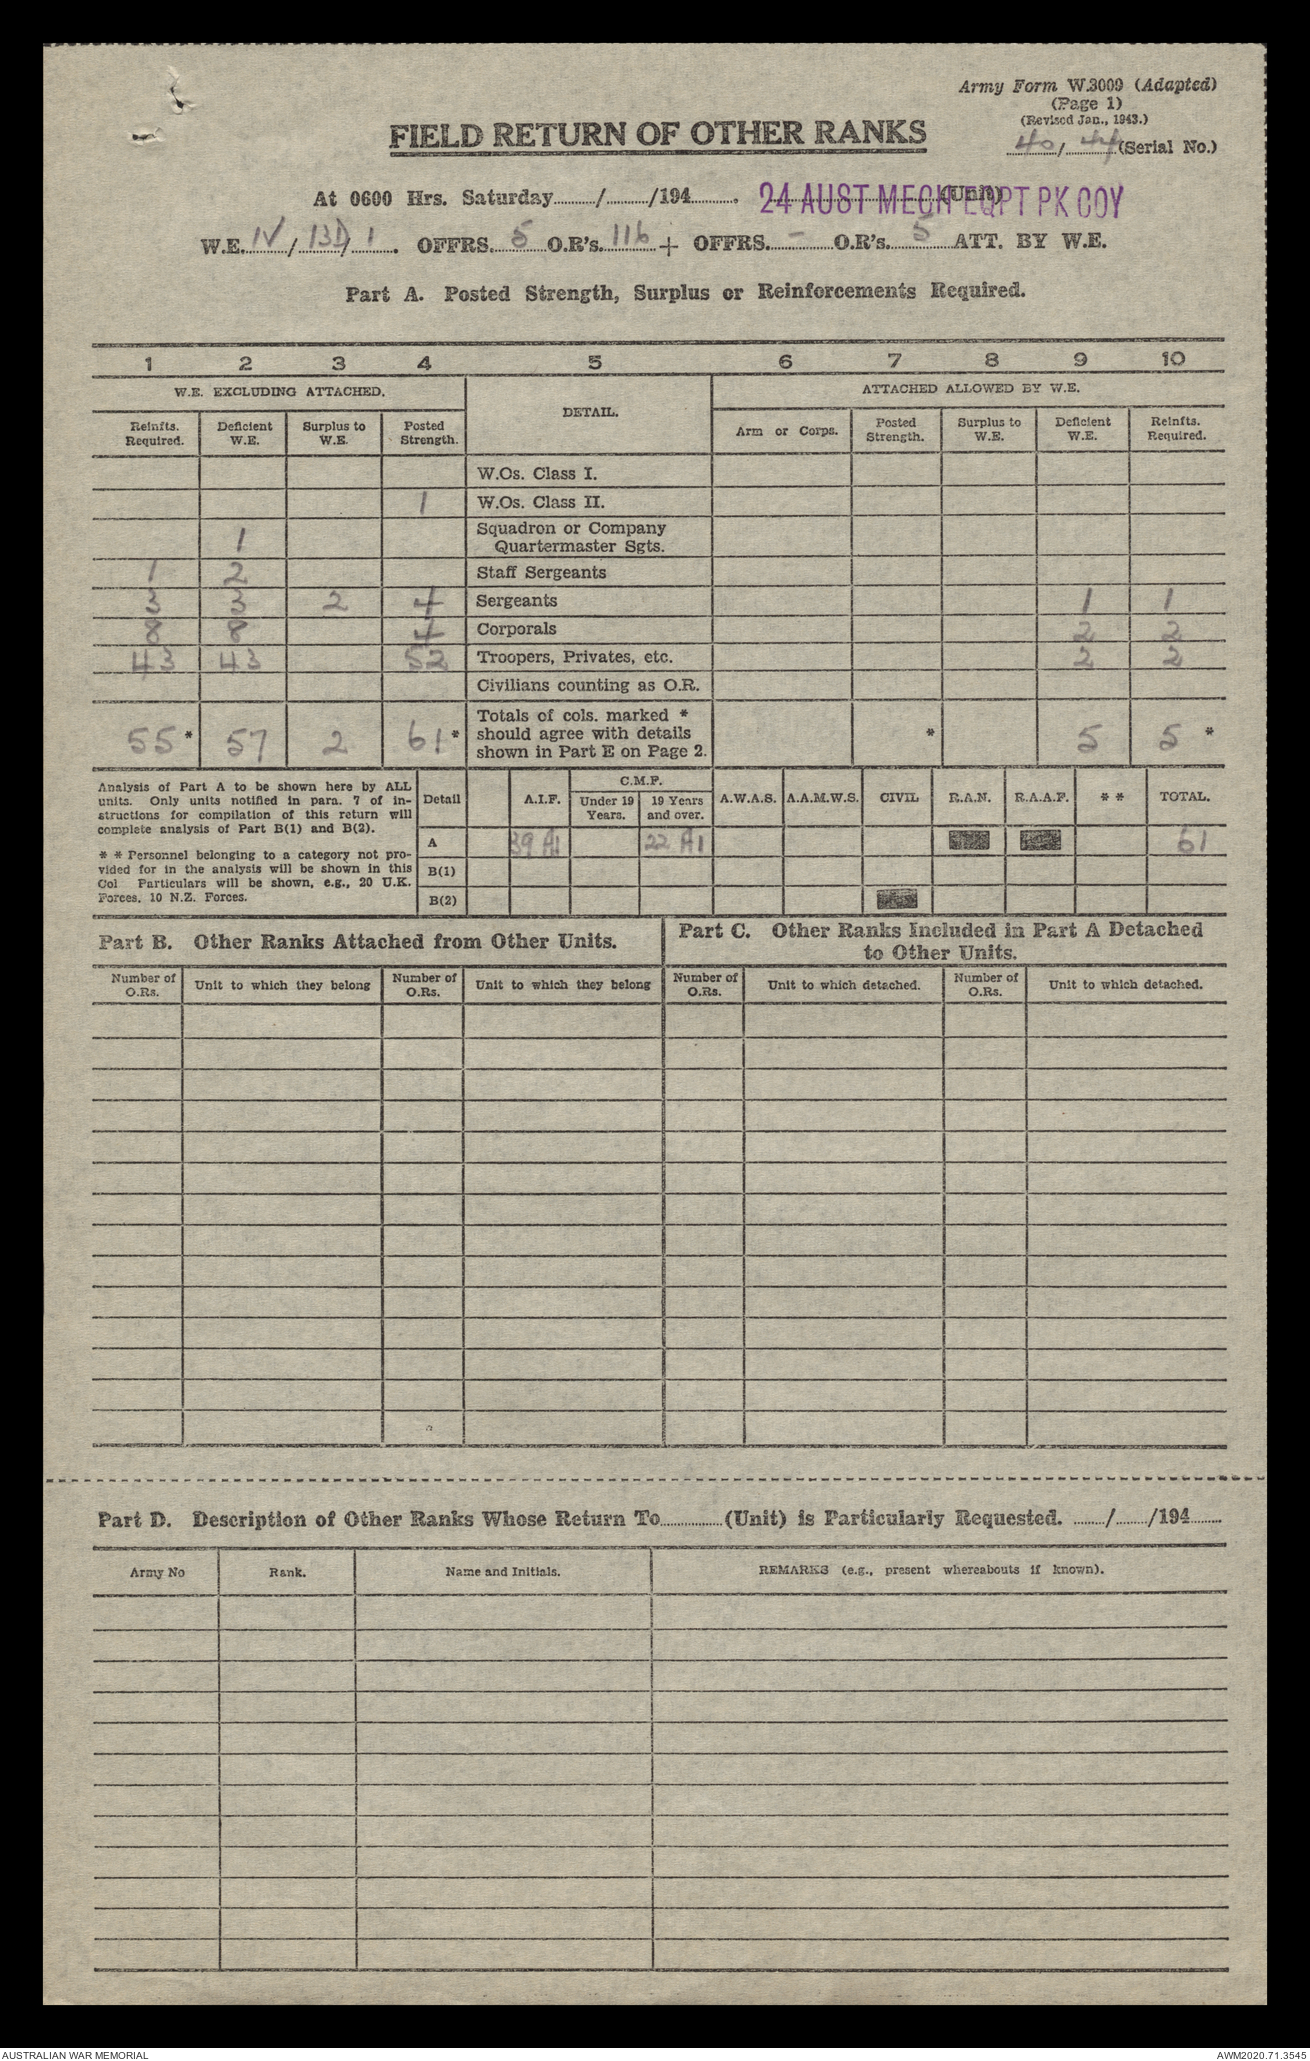 Army Form W.3009 (Adapted)
(Page 1)
(Revised Jan., 1943.)
40/44 (Serial No.)
FIELD RETURN OF OTHER RANKS
At 0600 Hrs. Saturday........./........./194.......... (Unit)
24 AUST MECH EQPT PK COY
W.E. IV / 13D / 1 . OFFRS. 5 O.R's. 116 + OFFRS. - O.R's. 5 ATT. BY W.E.
Part A. Posted Strength, Surplus or Reinforcements Required.
1 2 3 4 5 6 7 8 9 10
W.E. EXCLUDING ATTACHED. DETAIL. ATTACHED ALLOWED BY W.E.
Reinfts. Required. Deficient W.E. Surplus to W.E. Posted Strength. Arm or Corps. Posted Strength. Surplus to W.E. Deficient W.E. Reinfts. Required.
W.Os. Class I.
1 W.Os. Class II.
1 Squadron or Company
Quartermaster Sgts.
1 2 Staff Sergeants
3 3 2 4 Sergeants 1 1
8 8 4 Corporals 2 2
43 43 52 Troopers, Privates, etc. 2 2
Civilians counting as O.R.
Totals of cols. marked *
should agree with details
shown in Part E on Page 2.
55 * 57 2 61 * * 5 5 *
Analysis of Part A to be shown here by ALL
units. Only units notified in para. 7 of in-
structions for compilation of this return will
complete analysis of Part B(1) and B(2).
* * Personnel belonging to a category not pro-
vided for in the analysis will be shown in this
Col Particulars will be shown, e.g., 20 U.K.
Forces, 10 N.Z. Forces.
Detail A.I.F. C.M.F. Under 19 Years. 19 Years and over. A.W.A.S. A.A.M.W.S. CIVIL R.A.N. R.A.A.F. * * TOTAL.
A 39 A1 22 A1 61
B(1)
B(2)
Part B. Other Ranks Attached from Other Units.
Part C. Other Ranks Included in Part A Detached
to Other Units.
Number of O.Rs. Unit to which they belong Number of O.Rs. Unit to which they belong Number of O.Rs. Unit to which detached. Number of O.Rs. Unit to which detached.
Part D. Description of Other Ranks Whose Return To............(Unit) is Particularly Requested. ......./......./194.......
Army No Rank. Name and Initials. REMARKS (e.g., present whereabouts if known).
AUSTRALIAN WAR MEMORIAL AWM2020.71.3545